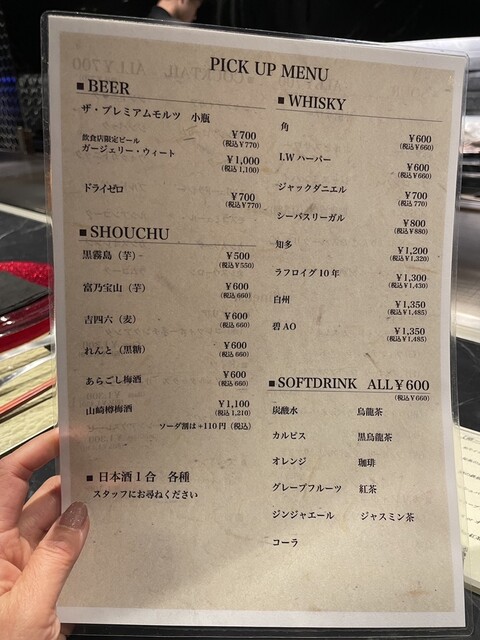 PICK UP MENU
■BEER
ザ・プレミアムモルツ 小瓶
¥700
(税込¥770)
飲食店限定ビール
ガージェリー・ウィート
¥1,000
(税込 1,100)
ドライゼロ
¥700
(税込¥770)
■SHOUCHU
黒霧島（芋）
¥500
(税込¥550)
富乃宝山（芋）
¥600
(税込 660)
吉四六（麦）
¥600
(税込 660)
れんと（黒糖）
¥600
(税込 660)
あらごし梅酒
¥600
(税込 660)
山崎樽梅酒
¥1,100
(税込 1,210)
ソーダ割は+110円（税込）
■日本酒1合 各種
スタッフにお尋ねください
■WHISKY
角
¥600
(税込¥660)
I.W ハーパー
¥600
(税込¥660)
ジャックダニエル
¥700
(税込 770)
シーバスリーガル
¥800
(税込¥880)
知多
¥1,200
(税込¥1,320)
ラフロイグ10年
¥1,300
(税込¥1,430)
白州
¥1,350
(税込¥1,485)
碧AO
¥1,350
(税込¥1,485)
■SOFTDRINK ALL¥600
(税込¥660)
炭酸水 烏龍茶
カルピス 黒烏龍茶
オレンジ 珈琲
グレープフルーツ 紅茶
ジンジャエール ジャスミン茶
コーラ